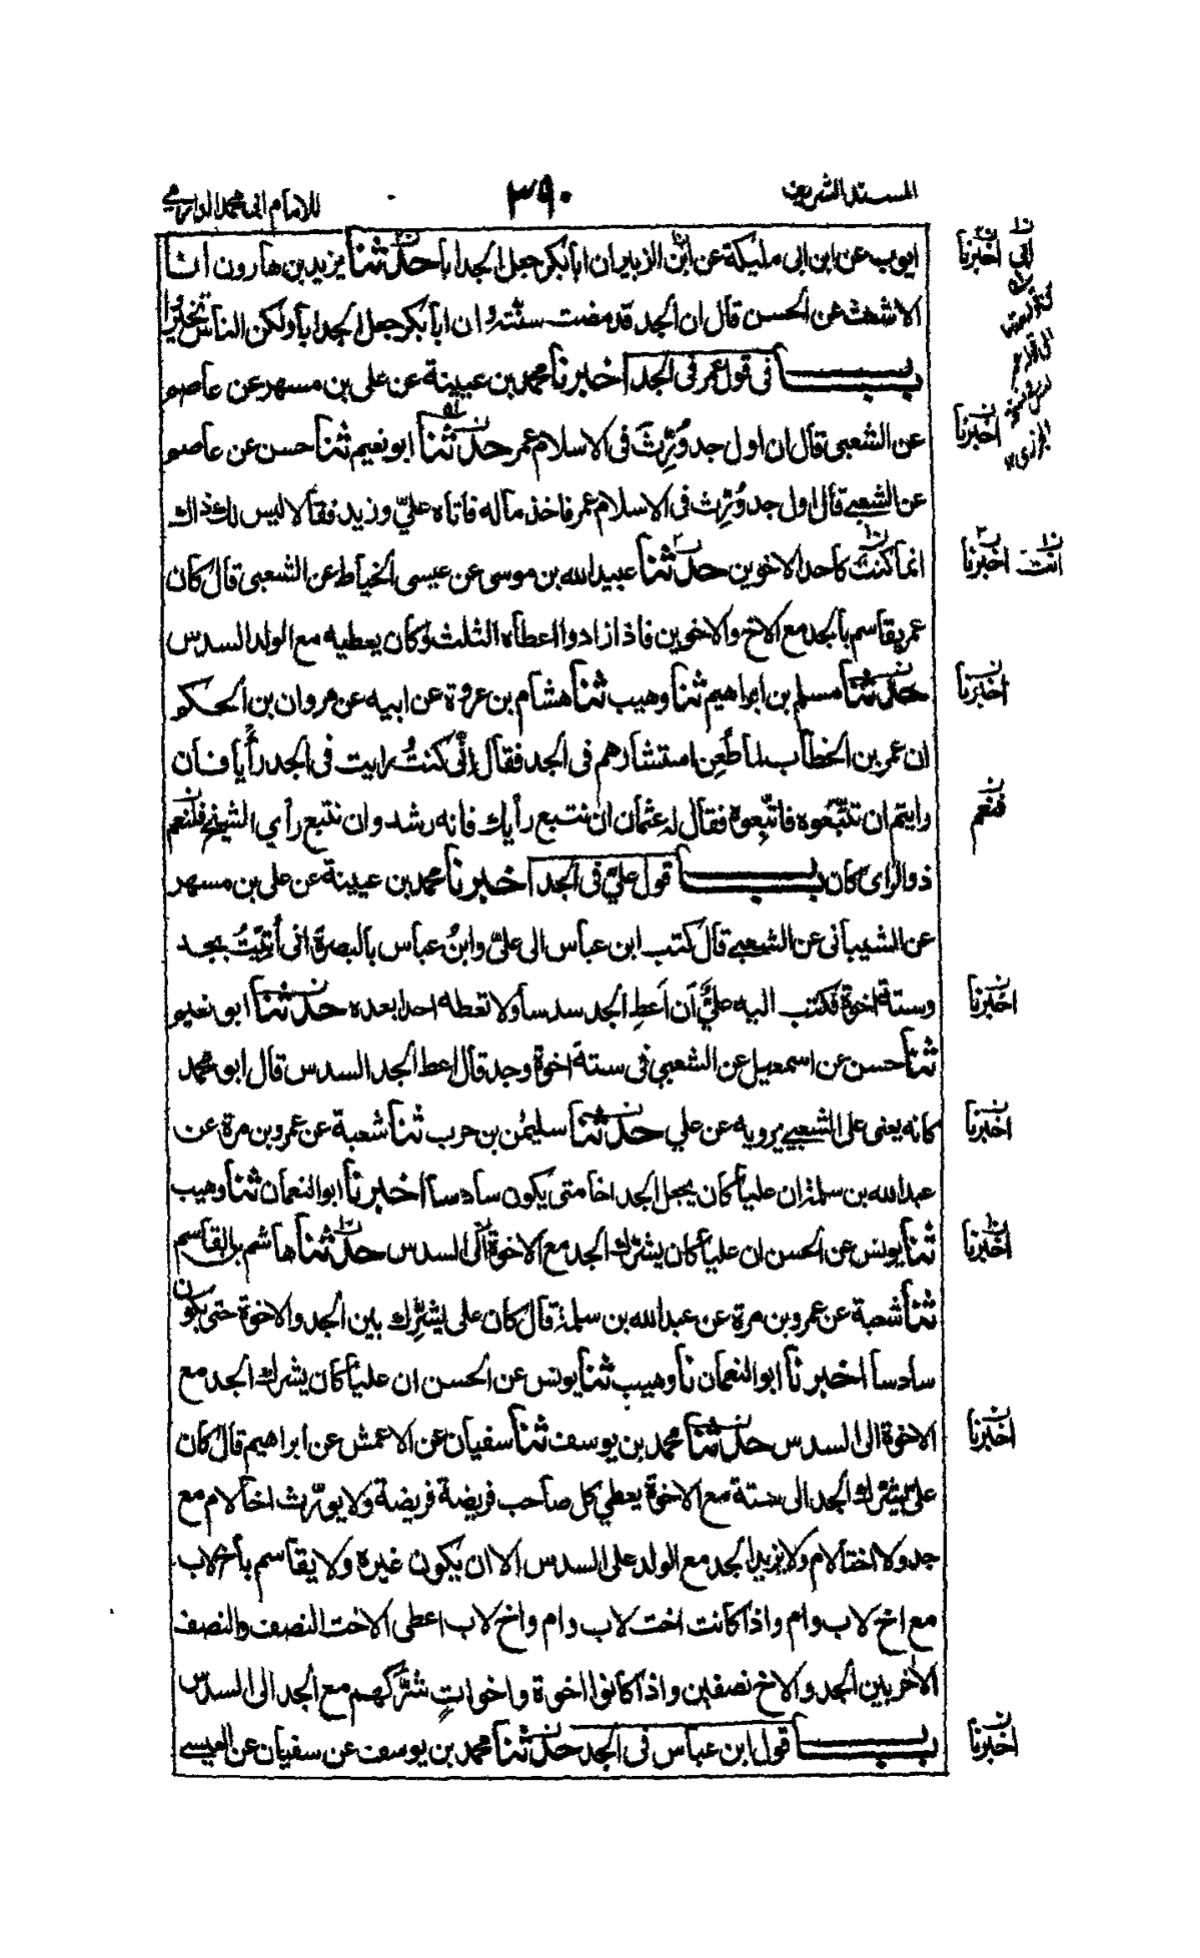 المسند الشريف
٣٩٠
للامام ابى محمد الدارمي
ايوب عن ابن ابى مليكة عن ابن الزبير ان ابا بكر جعل الجد ابا حدثنا يزيد بن هارون انا
الاشعث عن الحسن قال ان الجد قد مضت سنته وان ابا بكر جعل الجد ابا ولكن الناس تخيروا
باب فى قول عمر فى الجد اخبرنا محمد بن عيينة عن على بن مسهر عن عاصم
عن الشعبى قال ان اول جد وُرِّثَ فى الاسلام عمر حدثنا ابو نعيم ثنا حسن عن عاصم
عن الشعبي قال اول جد وُرِّث فى الاسلام عمر فاخذ ماله فاتاه عليّ وزيد فقالا ليس لك ذاك
انما كنت كاحد الاخوين حدثنا عبيد الله بن موسى عن عيسى الخياط عن الشعبى قال كان
عمر يقاسم بالجد مع الاخ والاخوين فاذا زادوا اعطاه الثلث وكان يعطيه مع الولد السدس
حدثنا مسلم بن ابراهيم ثنا وهيب ثنا هشام بن عروة عن ابيه عن مروان بن الحكم
ان عمر بن الخطاب لما طُعِن استشارهم فى الجد فقال إنّى كنتُ رايت فى الجد رأيا فان
رايتم ان تتّبعوه فاتّبِعوه فقال له عثمان ان نتبع رأيك فانه رشد وان نتبع رأي الشيخ فلنعم
ذو الراى كان باب قول عليّ فى الجد اخبرنا محمد بن عيينة عن على بن مسهر
عن الشيبانى عن الشعبي قال كتب ابن عباس الى علىّ وابنُ عباس بالبصرة انى أُتِيتُ بجد
وستة اخوة فكتب اليه عليٌّ أن أَعطِ الجد سدسا ولا تعطه احدا بعده حدثنا ابو نعيم
ثنا حسن عن اسمعيل عن الشعبي فى ستة اخوة وجد قال اعط الجد السدس قال ابو محمد
كانه يعنى على الشعبي يرويه عن علي حدثنا سليمٰن بن حرب ثنا شعبة عن عمرو بن مرة عن
عبد الله بن سلمة ان عليا كان يجعل الجد اخا متى يكون سادسا اخبرنا ابو النعمان ثنا وهيب
ثنا يونس عن الحسن ان عليا كان يشرّك الجد مع الاخوة الى السدس حدثنا هاشم بن القاسم
ثنا شعبة عن عمرو بن مرة عن عبد الله بن سلمة قال كان على يشرِّك بين الجد والاخوة حتى يكون
سادسا اخبرنا ابو النعمان نا وهيب ثنا يونس عن الحسن ان عليا كان يشرك الجد مع
الاخوة الى السدس حدثنا محمد بن يوسف ثنا سفيان عن الاعمش عن ابراهيم قال كان
علىّ يشرّك الجد الى ستة مع الاخوة يعطي كل صاحب فريضة فريضة ولا يورّث اخا لام مع
جد ولا اختا لام ولا يزيد الجد مع الولد على السدس الا ان يكون غيره ولا يقاسم باخ لاب
مع اخ لاب وام واذا كانت اخت لاب وام واخ لاب اعطى الاخت النصف والنصف
الآخر بين الجد والاخ نصفين واذا كانوا اخوة واخواتٍ شرَّكهم مع الجد الى السدس
باب قول ابن عباس فى الجد حدثنا محمد بن يوسف عن سفيان عن العيسي
ابى اخبرنا
اخبرنا
انت اخبرنا
اخبرنا
فنعم
اخبرنا
اخبرنا
اخبرنا
اخبرنا
اخبرنا